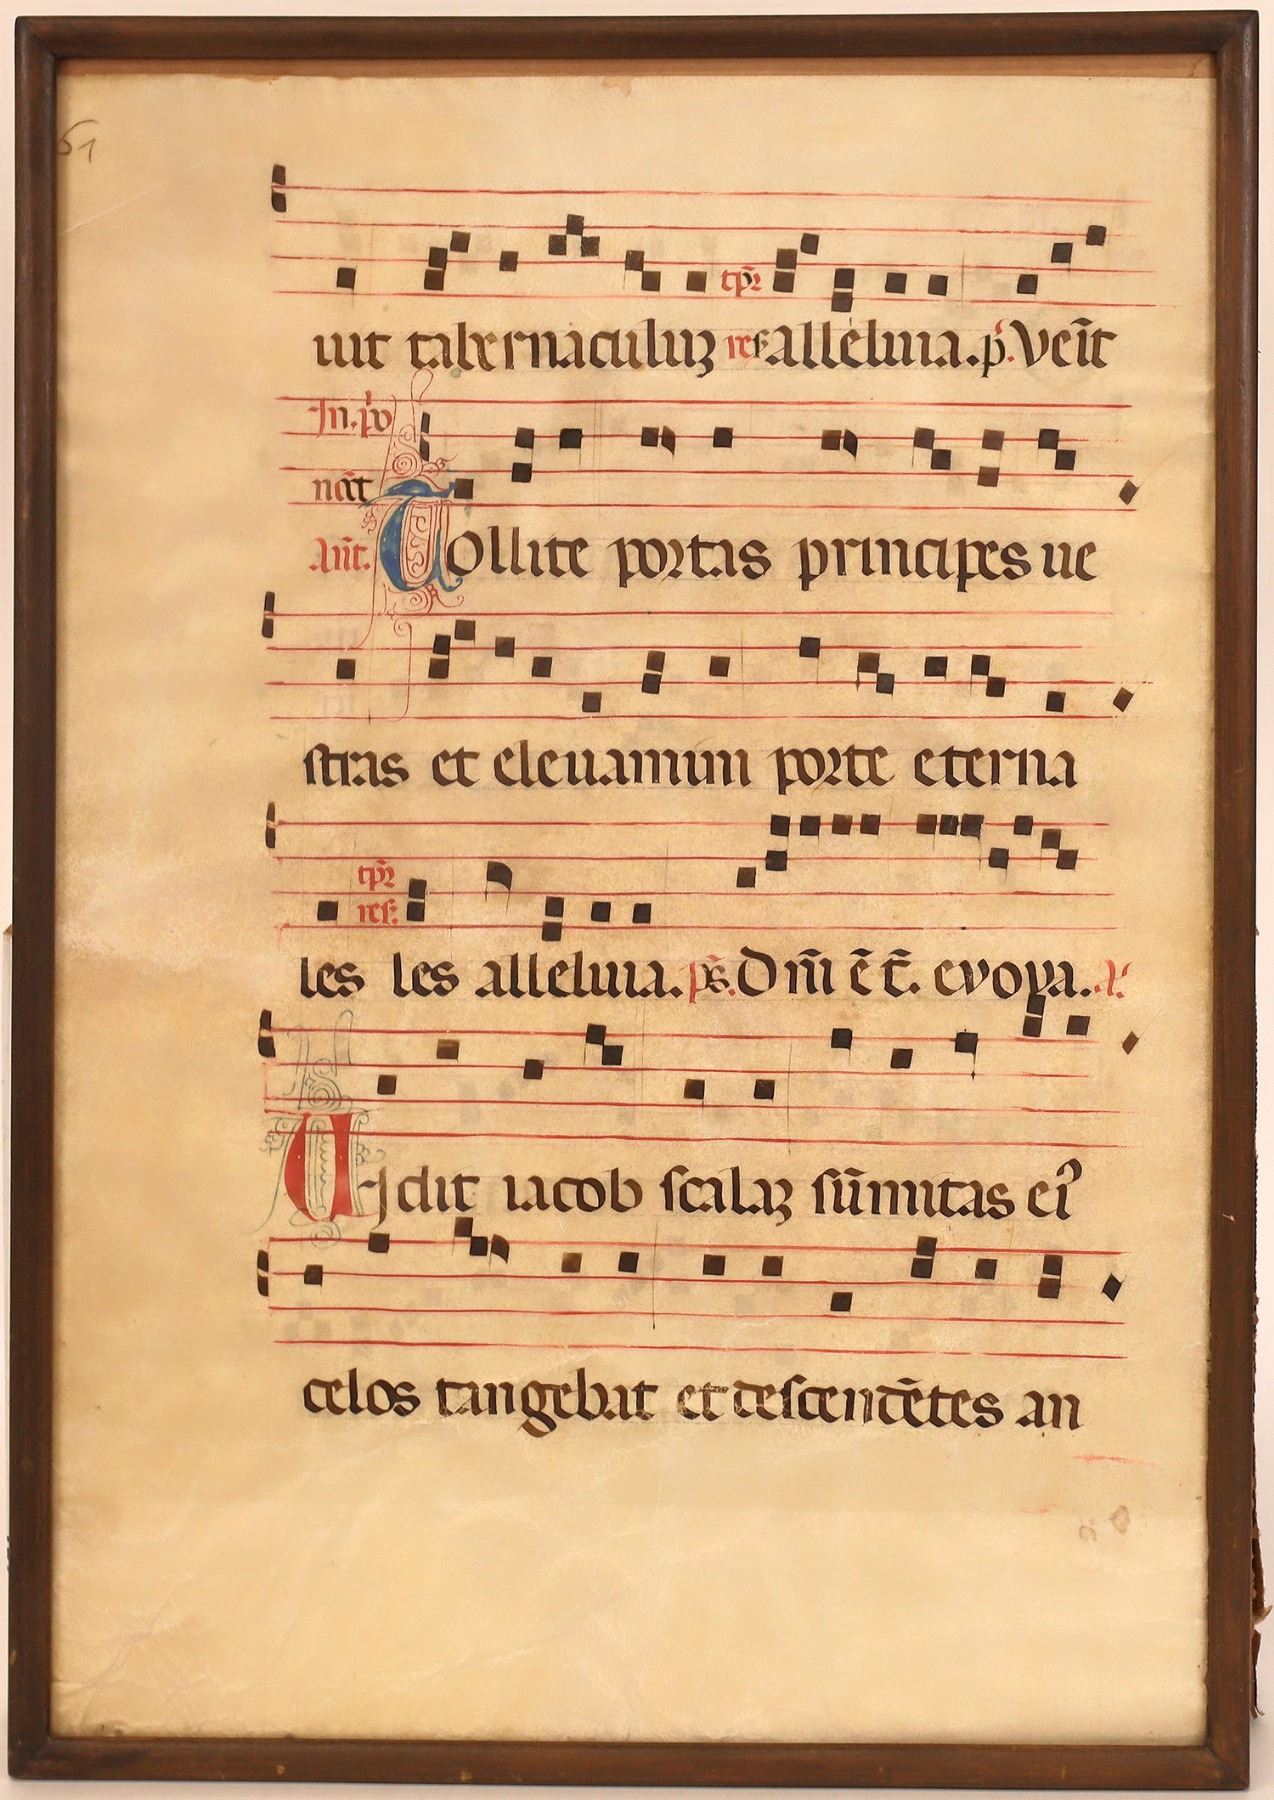 61
uit tabernaculuꝫ res alleluia. p̄. Veīt
In. pͥo
noct̄
Ant̄. Tollite portas principes ue
stras et eleuamini porte eterna
les les alleluia. ps̄. Dn̄i ē t̄. evova. A̓.
Uidit iacob scalaꝫ sūmitas eiꝰ
celos tangebat et descendētes an